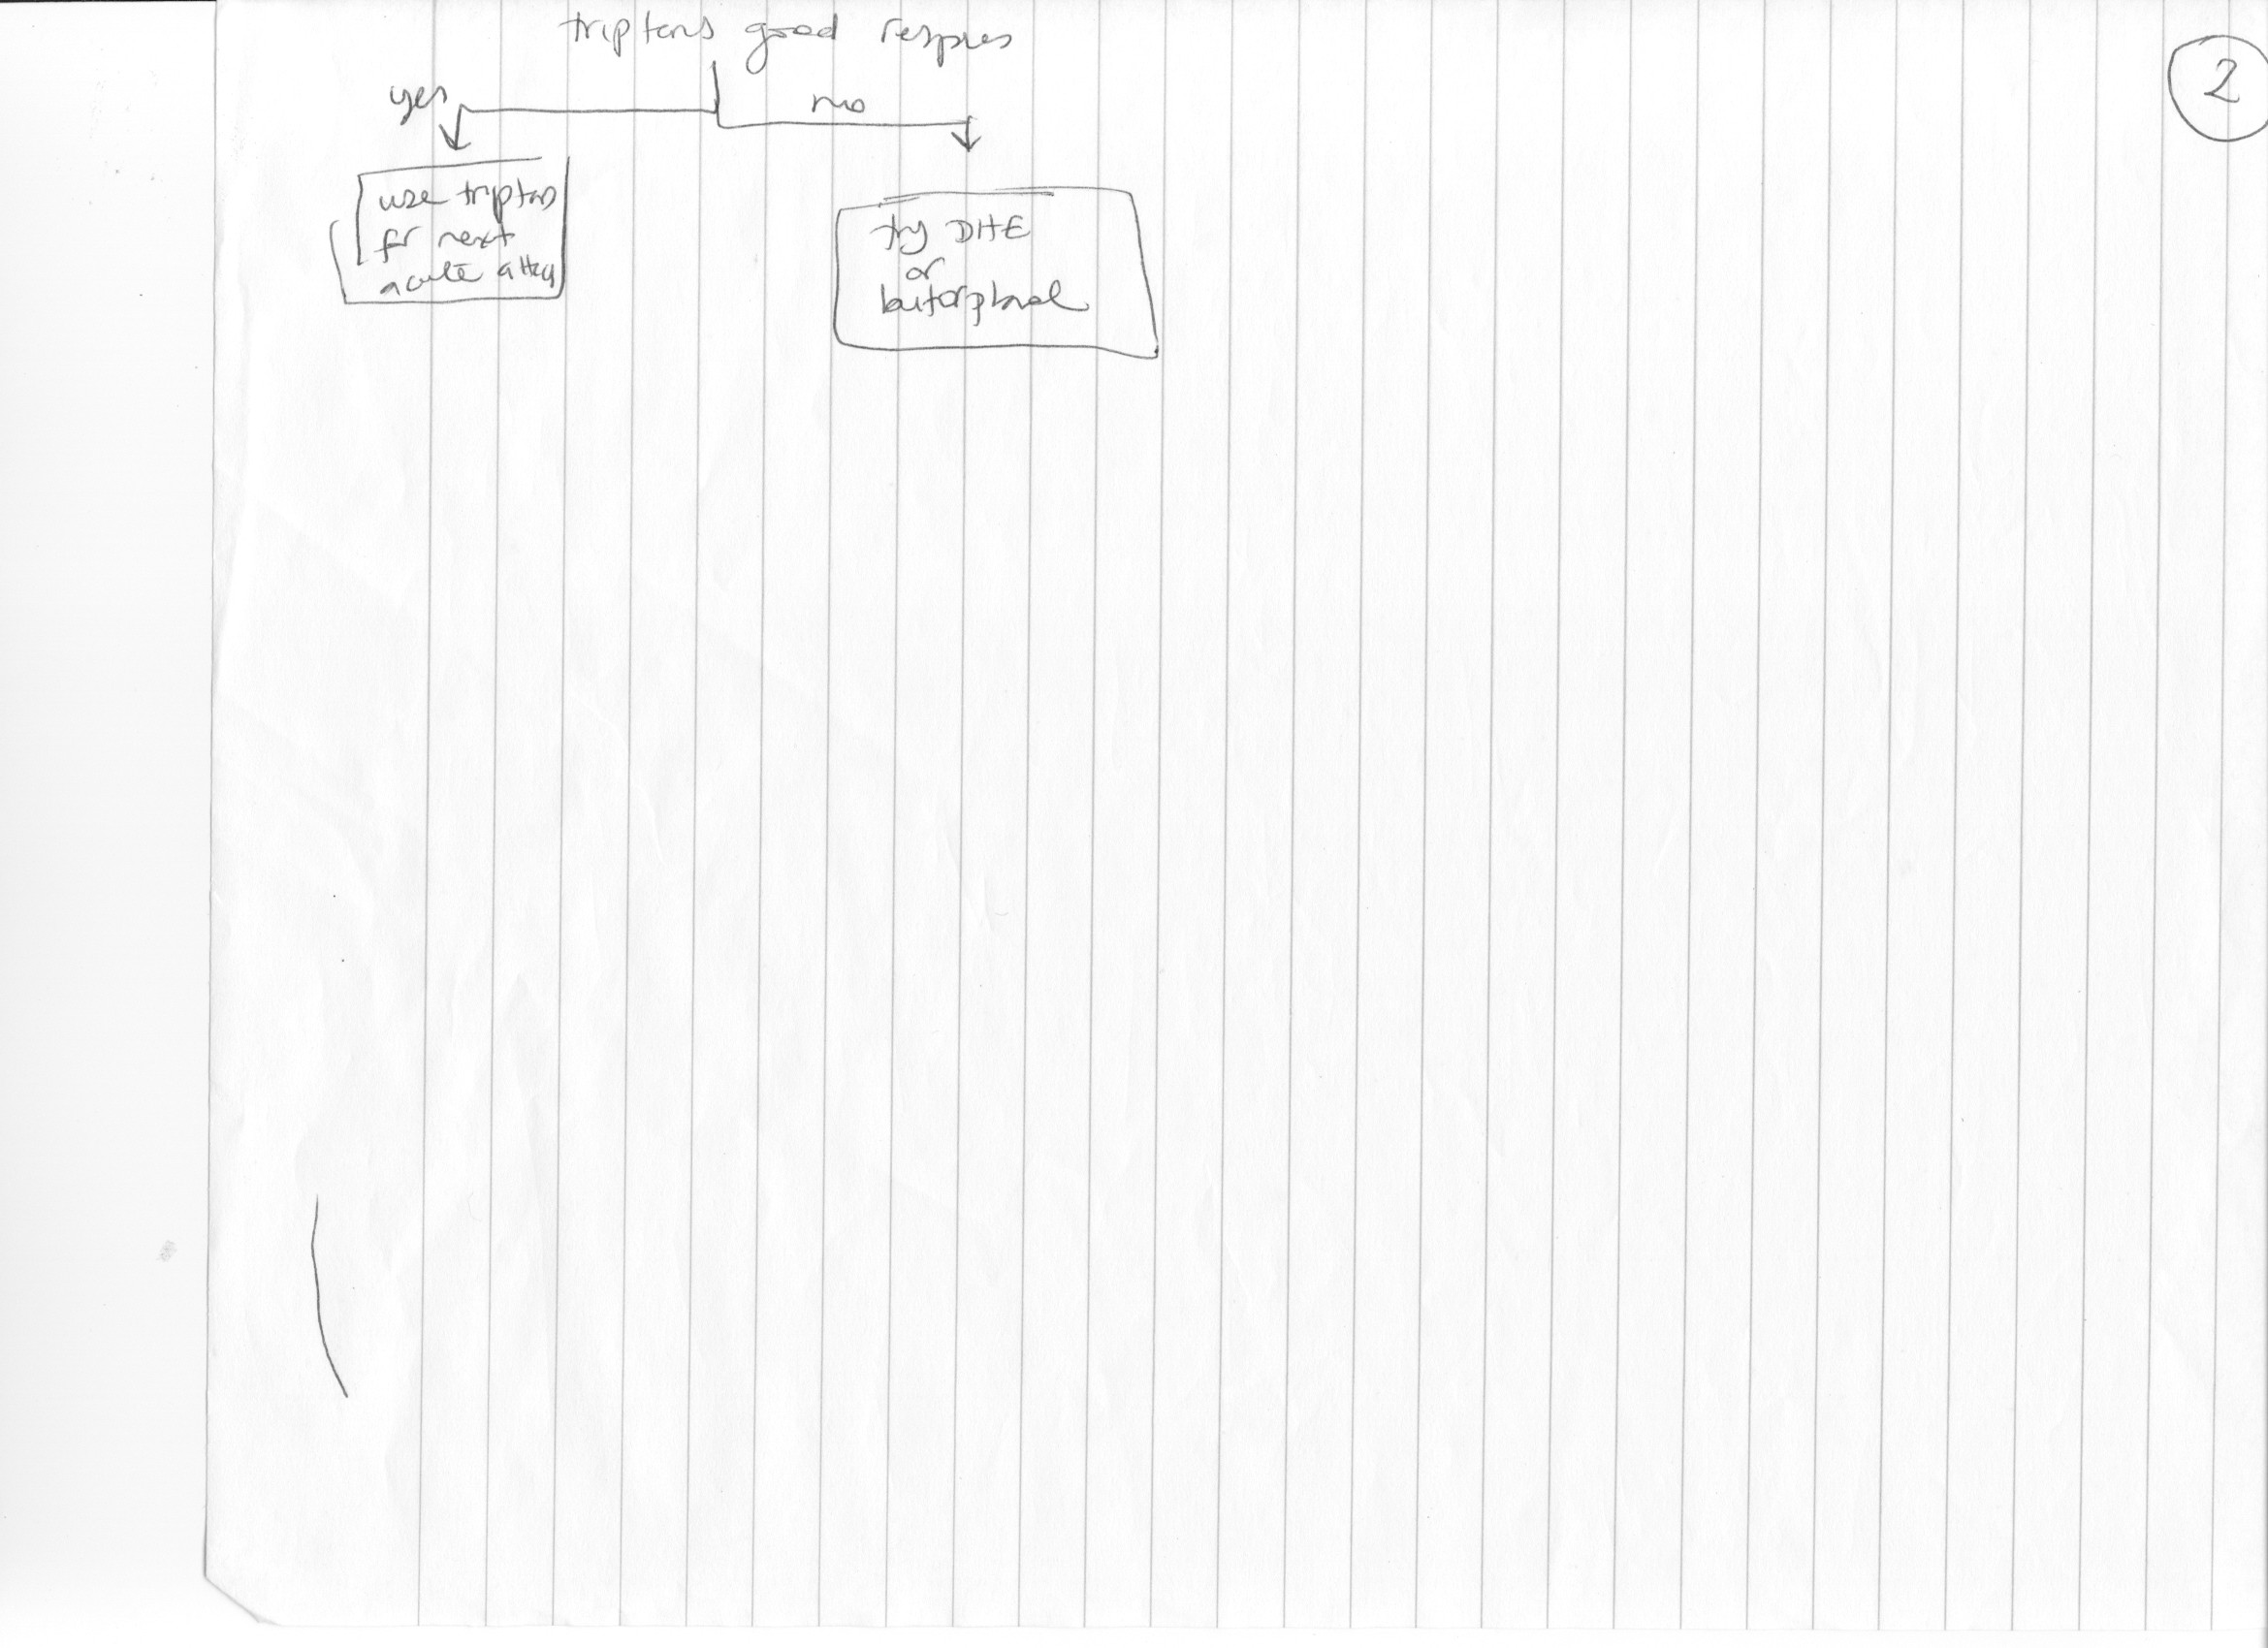 triptans good respns
2
yes
no
use triptans
for next
acute attack
try DHE
or
butorphanol